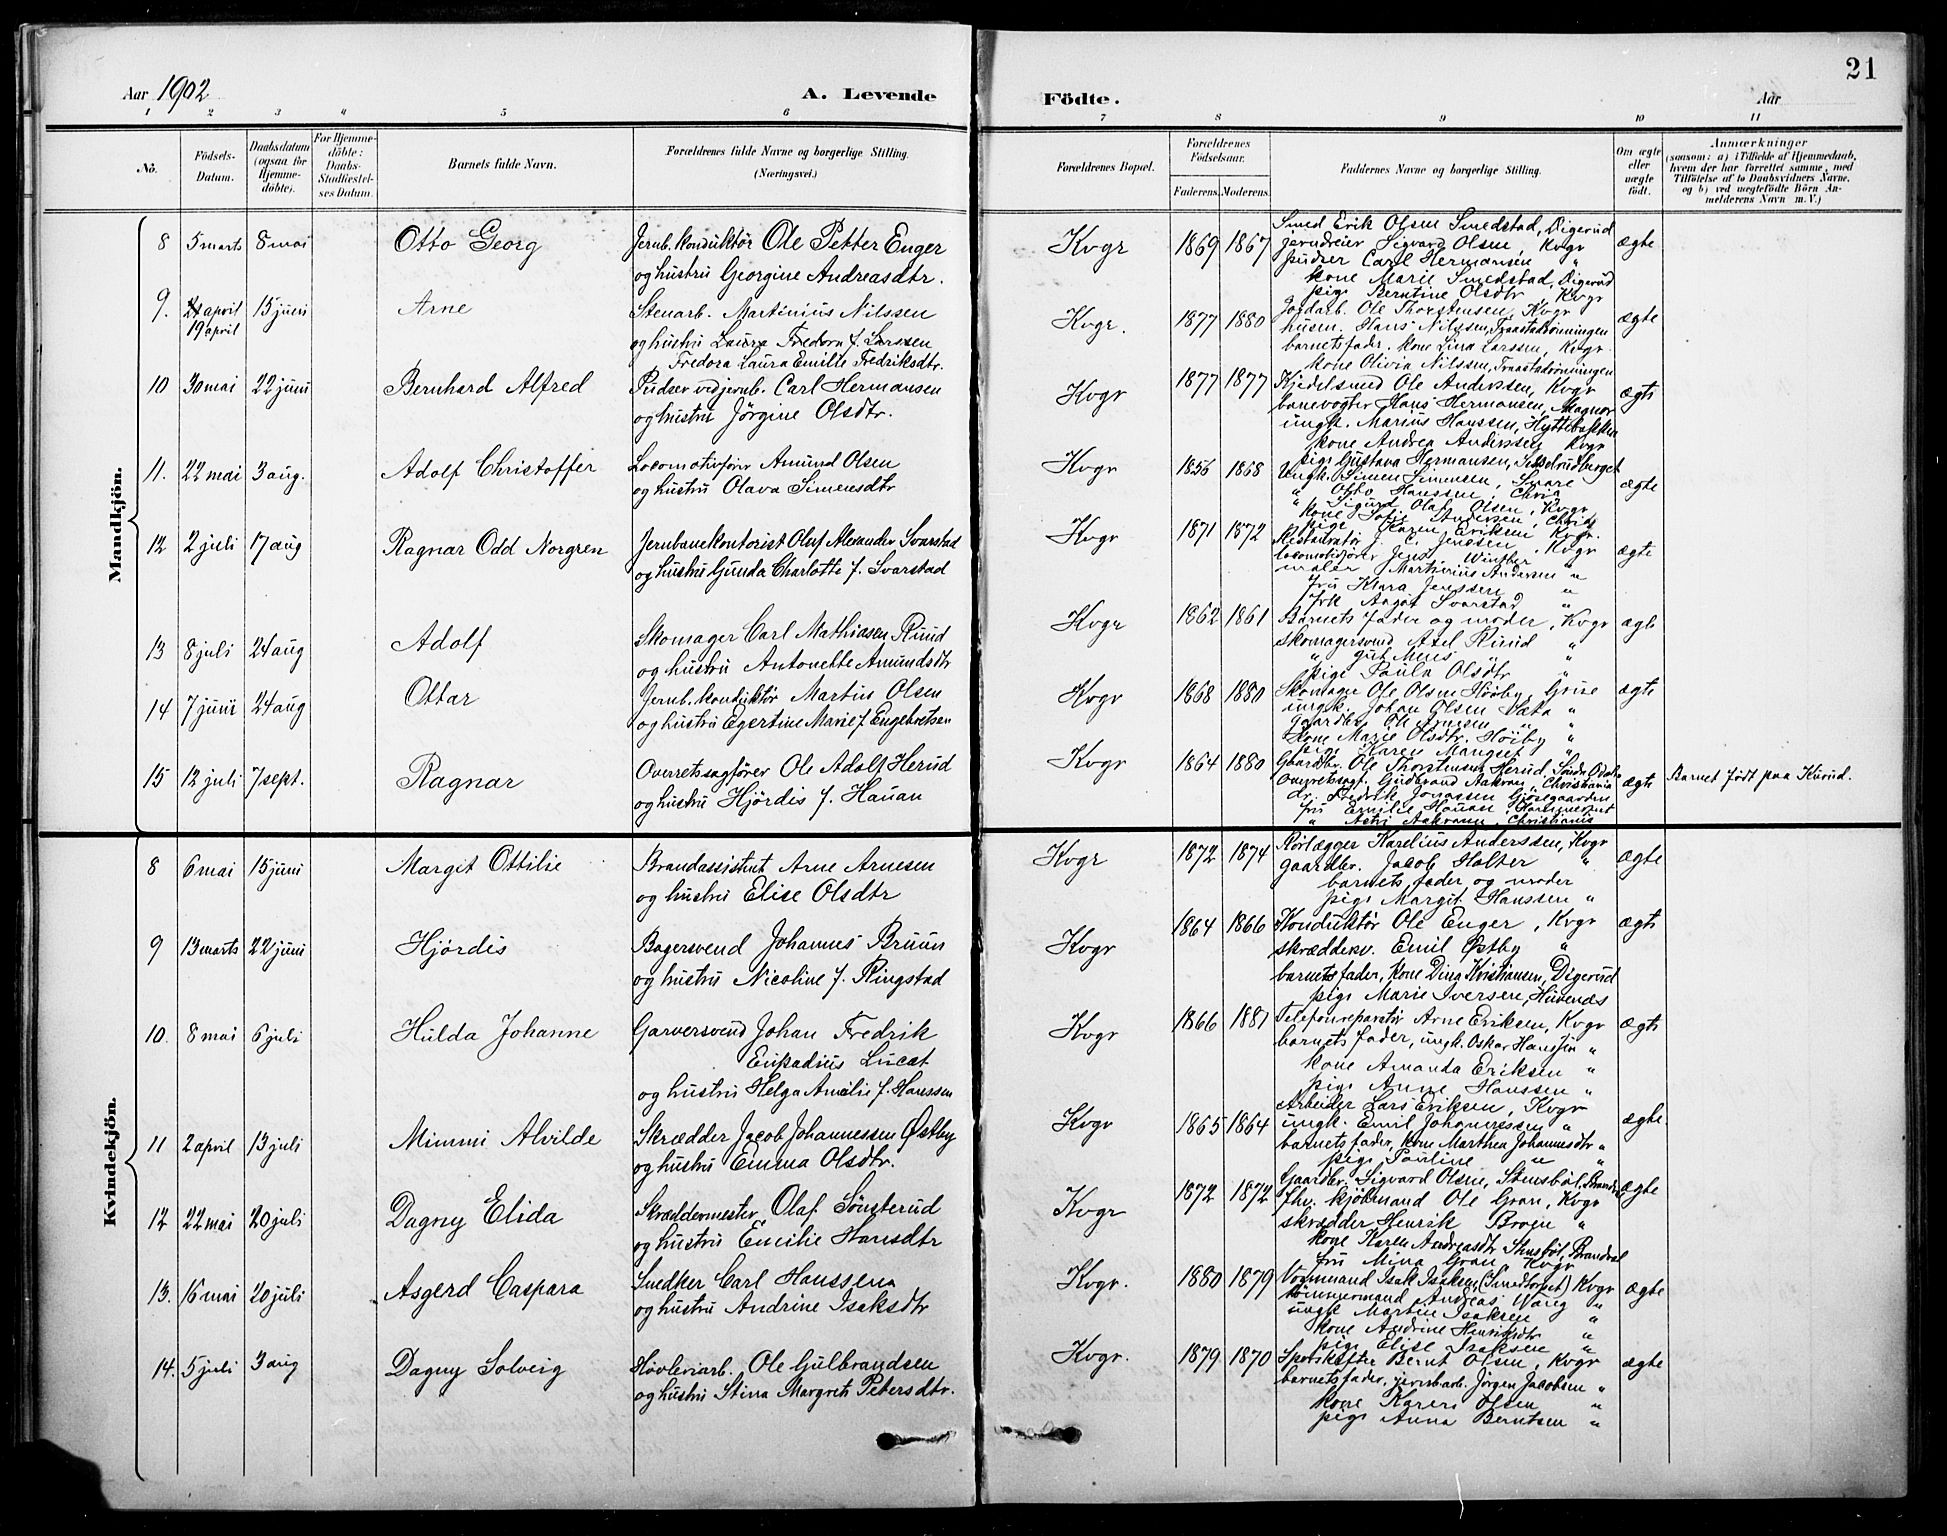 21
Aar 1902
A. Levende
Födte.
Aar
1 2 3 4 5 6
7 8 9 10 11
No.
Födsels-Datum.
Daabsdatum (ogsaa for Hjemme-döbte).
For Hjemme-döbte: Daabs-Stadfæstel-ses Datum.
Barnets fulde Navn.
Forældrenes fulde Navne og borgerlige Stilling. (Næringsvei.)
Forældrenes Bopæl.
Forældrenes Födselsaar.
Faderens. Moderens.
Faddernes Navne og borgerlige Stilling.
Om ægte eller uægte födt.
Anmærkninger
(saasom: a) i Tilfælde af Hjemmedaab, hvem der har forrettet samme, med Tilföielse af to Daabsvidners Navne, og b) ved uægtefödte Börn An-melderens Navn m. V.)
Mandkjön.
8 5 marts 8 mai Otto Georg
Jernb. konduktör Ole Petter Enger
og hustru Georgine Andreasdtr.
Kvgr 1869 1867
Smed Erik Olsen Smedstad, Digerud
Sigvard Olsen, Kvgr
pudser Carl Hermansen "
kone Marie Smedstad, Digerud
pige Berntine Olsdtr, Kvgr
ægte
9. april 15 juni Arne
19 april
Stenarb. Martinius Nilssen
og hustru Laura f. Larssen
Fredora Laura Emilie Fredriksdtr.
Kvgr. 1877 1880
Jordarb. Ole Thorstensen, Kvgr
husm. Hans Nilssen,
barnets fader. kone Lina Larssen, Kvgr.
kone Olivia Nilssen,
ægte
10 30 mai 22 juni Bernhard Alfred
Pudser ved jernb. Carl Hermansen
og hustru Jörgine Olsdtr.
Kvgr 1877 1877
Kjedelsmed Ole Anderssen, Kvgr
banevogter Hans Hermansen, Magnor
ungk. Marius Hanssen,
kone Andrea Anderssen Kvgr
pige Gustava Hermansen,
ægte
11. 22 mai 3 aug. Adolf Christoffer
Locomotivförer Amund Olsen
og hustru Olava Simensdtr
Kvgr 1856 1868
Ungk. Simen Simensen,
" Otto Hanssen, Chria
" Sigurd Olaf Olsen, Kvgr
kone Sofie Andersen, Chria
pige Karen Eriksen Kvgr.
ægte
12 2 juli 17 aug Ragnar Odd Norgren
Jernbanekontorist Oluf Alexander Svarstad
og hustru Gunda Charlotte f. Svarstad
Kvgr 1871 1872
Restauratör J. C. Jenssen, Kvgr
Jens Winther "
maler Martinius Andersen "
fru Klara Jenssen "
frk Aagot Svarstad "
ægte
13 8 juli 24 aug Adolf
Skomager Carl Mathiasen Ruud
og hustru Antonette Amundsdtr
Kvgr 1862 1861
Barnets fader og moder, Kvgr
skomagersvend Axel Ruud "
" gut Mens "
pige Paula Olsdtr "
ægte
14 7 juni 24 aug Ottar
Jernb. konduktör Martin Olsen
og hustru Egertine Marie f. Engebretsen
Kvgr 1868 1880
Skomager Ole Olsen Höiby, Grue
ungk. Johan Olsen Sæta "
Gaardbr. Ole Arnesen "
kone Marie Olsdtr. Höiby "
pige Karen "
ægte
15 12 juli 7 sept. Ragnar
Overretssagförer Ole Adolf Herud
og hustru Hjördis f. Hauan
Kvgr 1864 1880
Gaardbr. Ole Thorstensen Herud, Söndre Odalen
Overretssagf. Gudbrand Aakrann, Christiania
dr. Fredrik Jonassen
fru Emilie Hauan, Hammerfest
" Astri Aakrann, Christiania
ægte
Barnet födt paa Kurud.
Kvindekjön.
8 6 mai 15 juni Margit Ottilie
Brandassistent Arne Arnesen
og hustru Elise Olsdtr
Kvgr 1872 1874
Rörlægger Karelius Anderssen, Kvgr
gaardbr. Jacob Holter "
barnets fader og moder
pige Margit Hanssen "
ægte
9 13 marts 22 juni Hjördis
Bagersvend Johannes Bruun
og hustru Nicoline f. Ringstad
Kvgr 1864 1866
Konduktör Ole Enger, Kvgr
skræddersv. Emil Østby "
barnets fader, kone Dina Kristiansen, Digerud
pige Marie Iversen,
ægte
10. 8 mai 6 juli Hulda Johanne
Garversvend Johan Fredrik
Lucat
og hustru Helga Amalie f. Hanssen
Kvgr 1866 1881
Telefonreparatör Arne Eriksen, Kvgr
barnets fader, ungk. Oskar Hanssen "
kone Amanda Eriksen "
pige Anne Hanssen "
ægte
11 2 april 13 juli Mimmi Alvilde
Skrædder Jacob Johannessen Østby
og hustru Emma Olsdtr.
Kvgr 1865 1864
Arbeider Lars Eriksen, Kvgr
ungk. Emil Johannessen "
barnets fader, kone Marthea Johannesdtr "
pige Pauline " "
ægte.
12 22 mai 20 juli Dagny Elida
Skræddermester Olaf Sönsterud
og hustru Emilie Hansdtr
Kvgr 1872 1872
Gaardbr. Sigvard Olsen, Stensböl, Brandval
fhv. kjöbmand Ole Gran, Kvgr
skrædder Henrik Broen "
kone Karen Andreasdtr Stensböl, Brandval
fru Mina Gran, Kvgr
ægte
13. 16 mai 20 juli Asgerd Caspara
Snedker Carl Hanssen
og hustru Andrine Isaksdtr
Kvgr. 1880 1879
Vognmand Isak Isaksen, (Smedtorpet) Kvgr
tömmermand Andreas Wang "
ungk Martin Isaksen "
kone Andrine Henriksdtr "
pige Elise Isaksen "
ægte
14. 5 juli 3 aug Dagny Solveig
Hövleriarb. Ole Gulbrandsen
og hustru Stina Margrete Petersdtr.
Kvgr. 1879 1870
Sporskifter Bernt Olsen, Kvgr
barnets fader, jernbarb. Jörgen Jacobsen "
kone Karen Olsen "
pige Anna Berntsen "
ægte